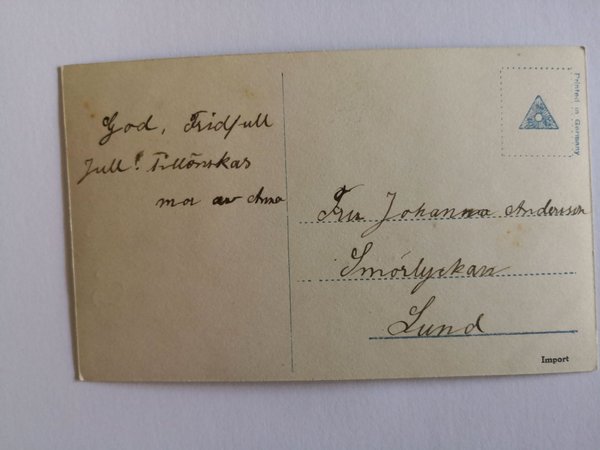 God, Fridfull
Jull! Tillönskas
mor av Anna
Fru Johanna Anderson
Smörlyckan
Lund
Printed in Germany
Import